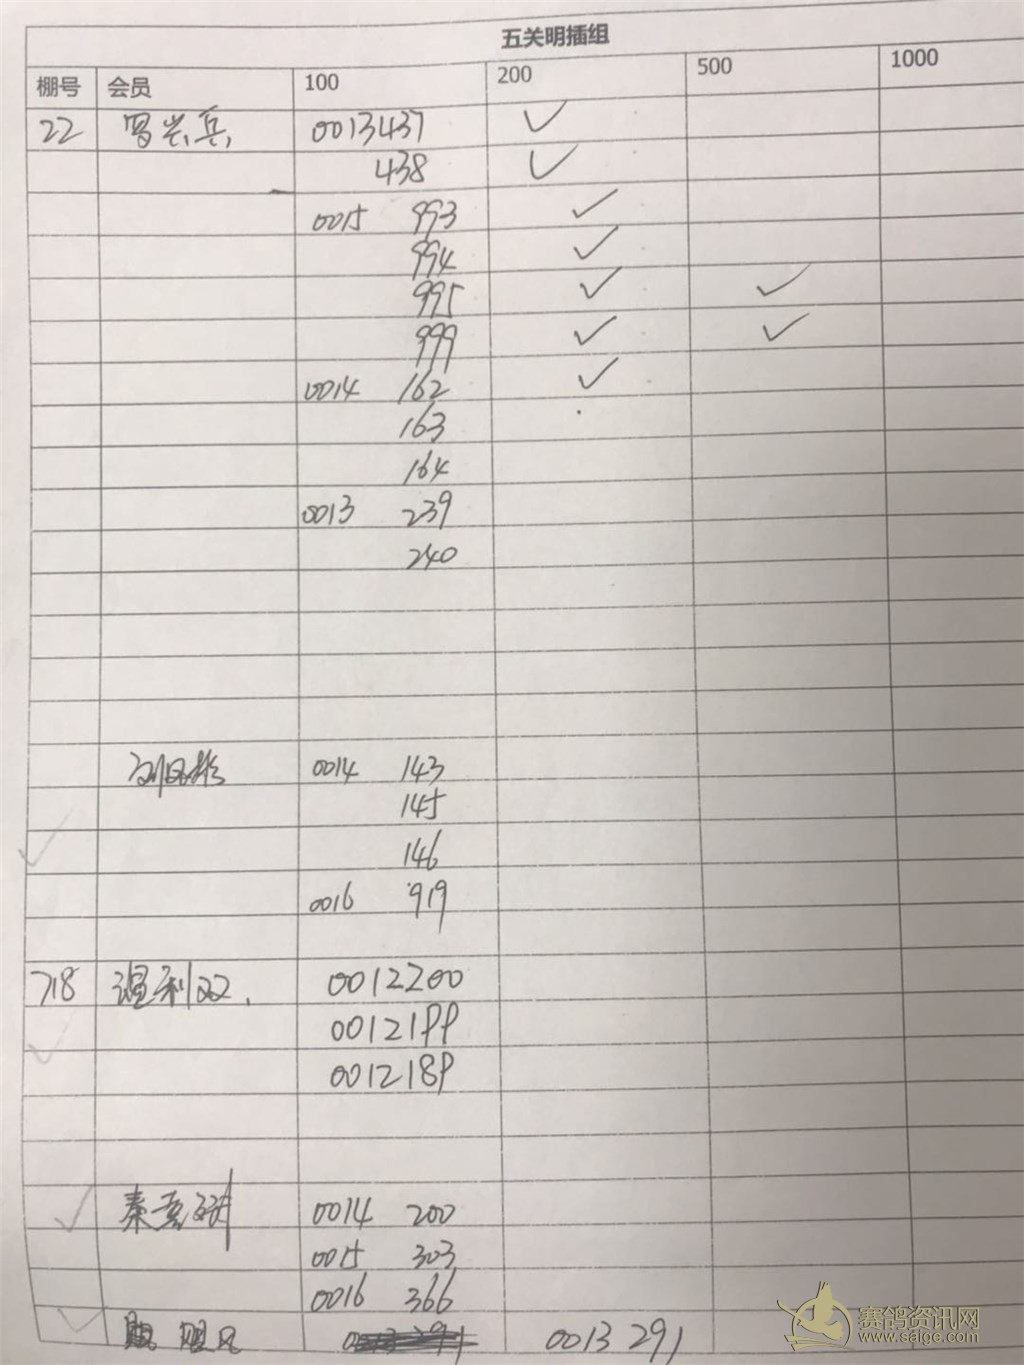 五关明插组
棚号 会员 100 200 500 1000
22 罗兴兵 0013437 ✓
438 ✓
0015 993 ✓
994 ✓
995 ✓ ✓
999 ✓ ✓
0014 162 ✓
163
164
0013 239
240
0014 143
145
146
0016 919
718 温利双 0012200
0012199
0012189
0014 200
0015 303
0016 366
0013 291
赛鸽资讯网
www.saige.com